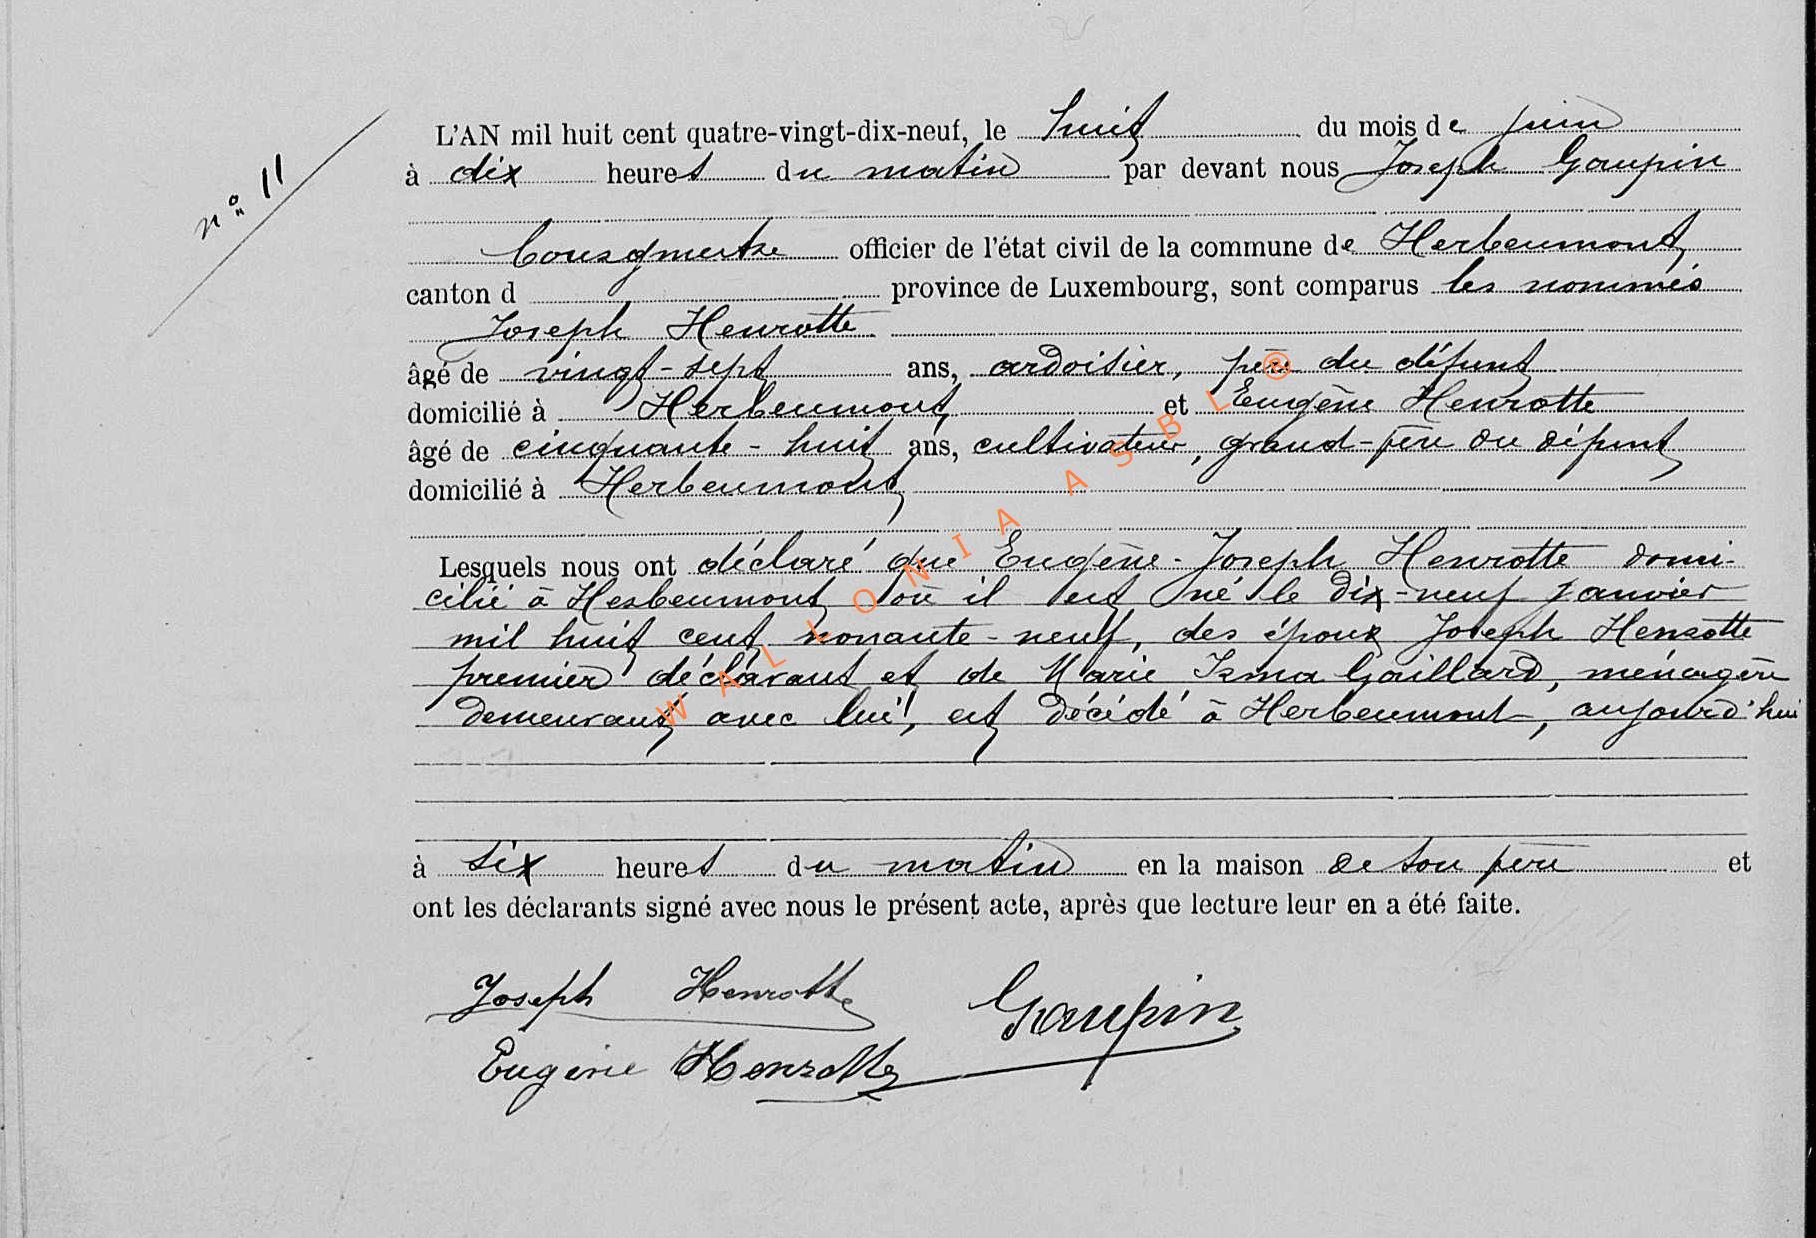 n° 11
L'AN mil huit cent quatre-vingt-dix-neuf, le huit du mois de juin
à dix heures du matin par devant nous Joseph Goupin
officier de l'état civil de la commune de Herbeumont
canton d province de Luxembourg, sont comparus les nommés
Joseph Henrotte
âgé de vingt-sept ans, ardoisier, père du défunt
domicilié à Herbeumont et Eugène Henrotte
âgé de cinquante-huit ans, cultivateur, grand-père du défunt
domicilié à Herbeumont
Lesquels nous ont déclaré que Eugène-Joseph Henrotte domi-
cilié à Herbeumont où il est né le dix-neuf janvier
mil huit cent nonante-neuf, des époux Joseph Henrotte
premier déclarant et de Marie Irma Gaillard, ménagère
demeurant avec lui, est décédé à Herbeumont, aujourd'hui
à six heures du matin en la maison de son père et
ont les déclarants signé avec nous le présent acte, après que lecture leur en a été faite.
Joseph Henrotte Goupin
Eugène Henrotte
WALLONIA ASBL ®